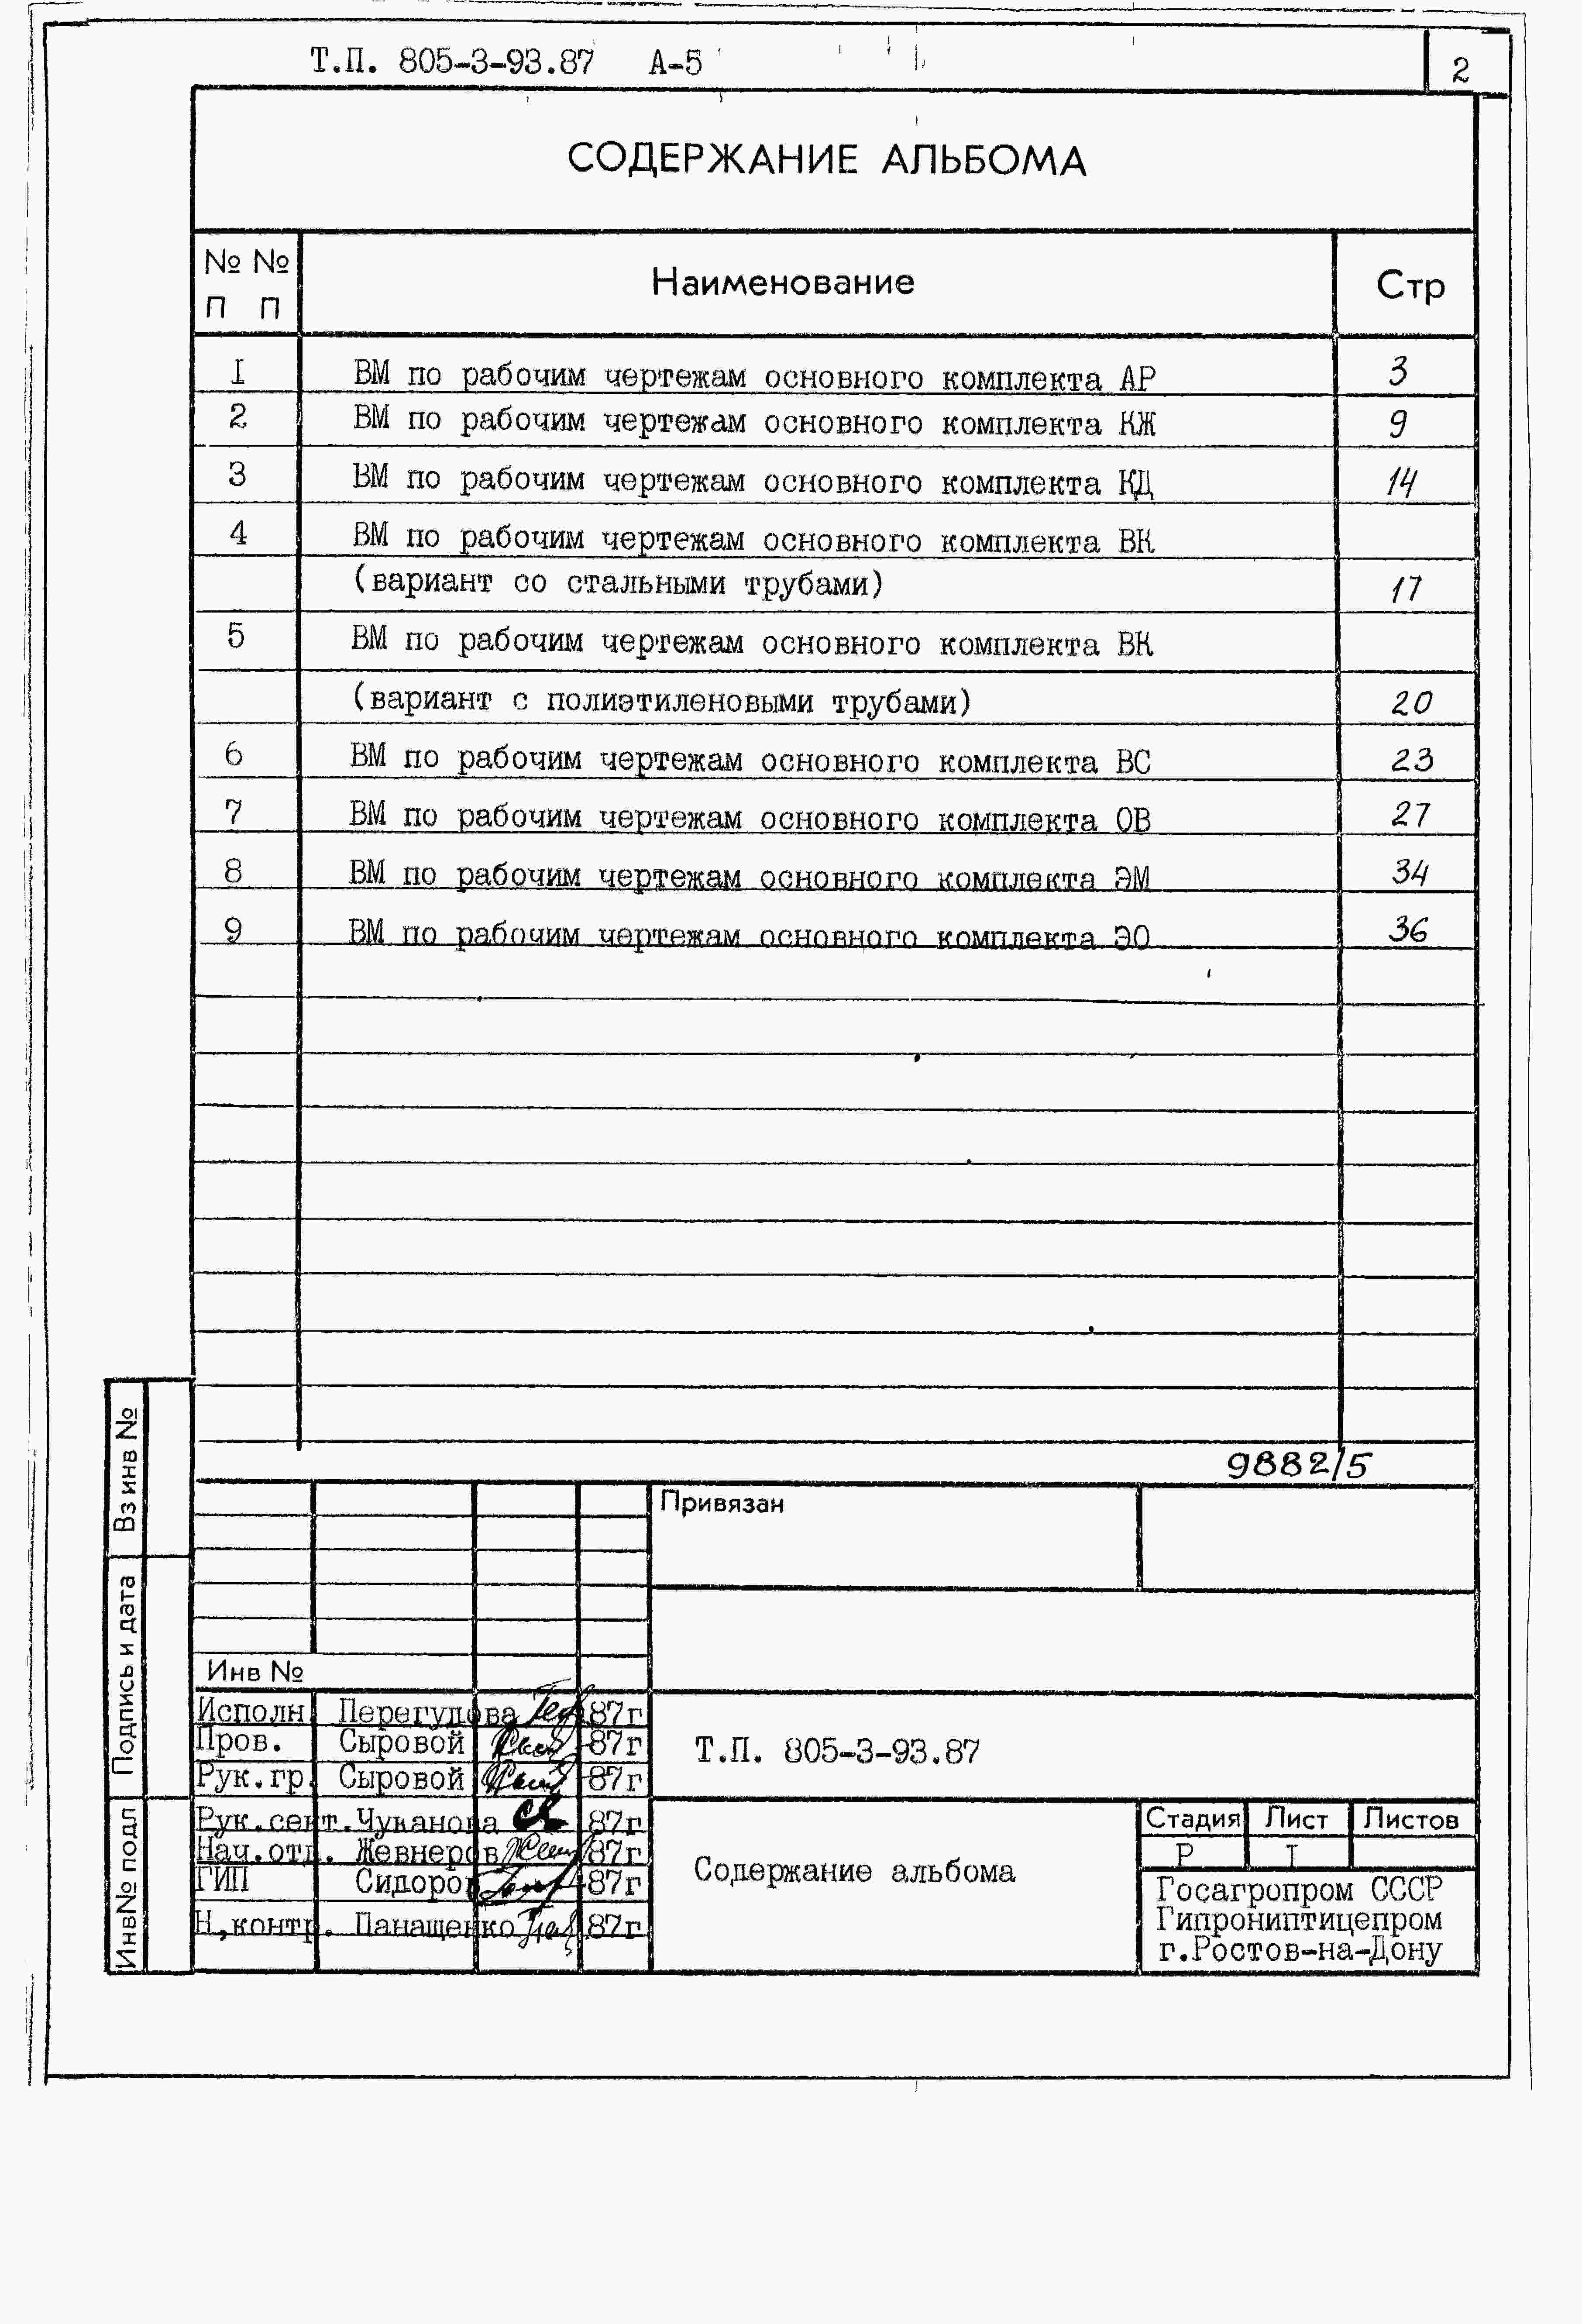 Т.П. 805-3-93.87 А-5
2
СОДЕРЖАНИЕ АЛЬБОМА
№ № Наименование Стр
П П
I ВМ по рабочим чертежам основного комплекта АР 3
2 ВМ по рабочим чертежам основного комплекта КЖ 9
3 ВМ по рабочим чертежам основного комплекта КД 14
4 ВМ по рабочим чертежам основного комплекта ВК
(вариант со стальными трубами) 17
5 ВМ по рабочим чертежам основного комплекта ВК
(вариант с полиэтиленовыми трубами) 20
6 ВМ по рабочим чертежам основного комплекта ВС 23
7 ВМ по рабочим чертежам основного комплекта ОВ 27
8 ВМ по рабочим чертежам основного комплекта ЭМ 34
9 ВМ по рабочим чертежам основного комплекта ЭО 36
9882/5
Привязан
Инв №
Исполн. Перегудова 87г
Пров. Сыровой 87г
Рук.гр. Сыровой 87г
Рук.сект. Чуканова 87г
Нач.отд. Жевнеров 87г
ГИП Сидоров 87г
Н,контр. Панащенко 87г
Т.П. 805-3-93.87
Содержание альбома
Стадия Лист Листов
Р I
Госагропром СССР
Гипрониптицепром
г.Ростов-на-Дону
Вз инв №
Подпись и дата
Инв№ подл